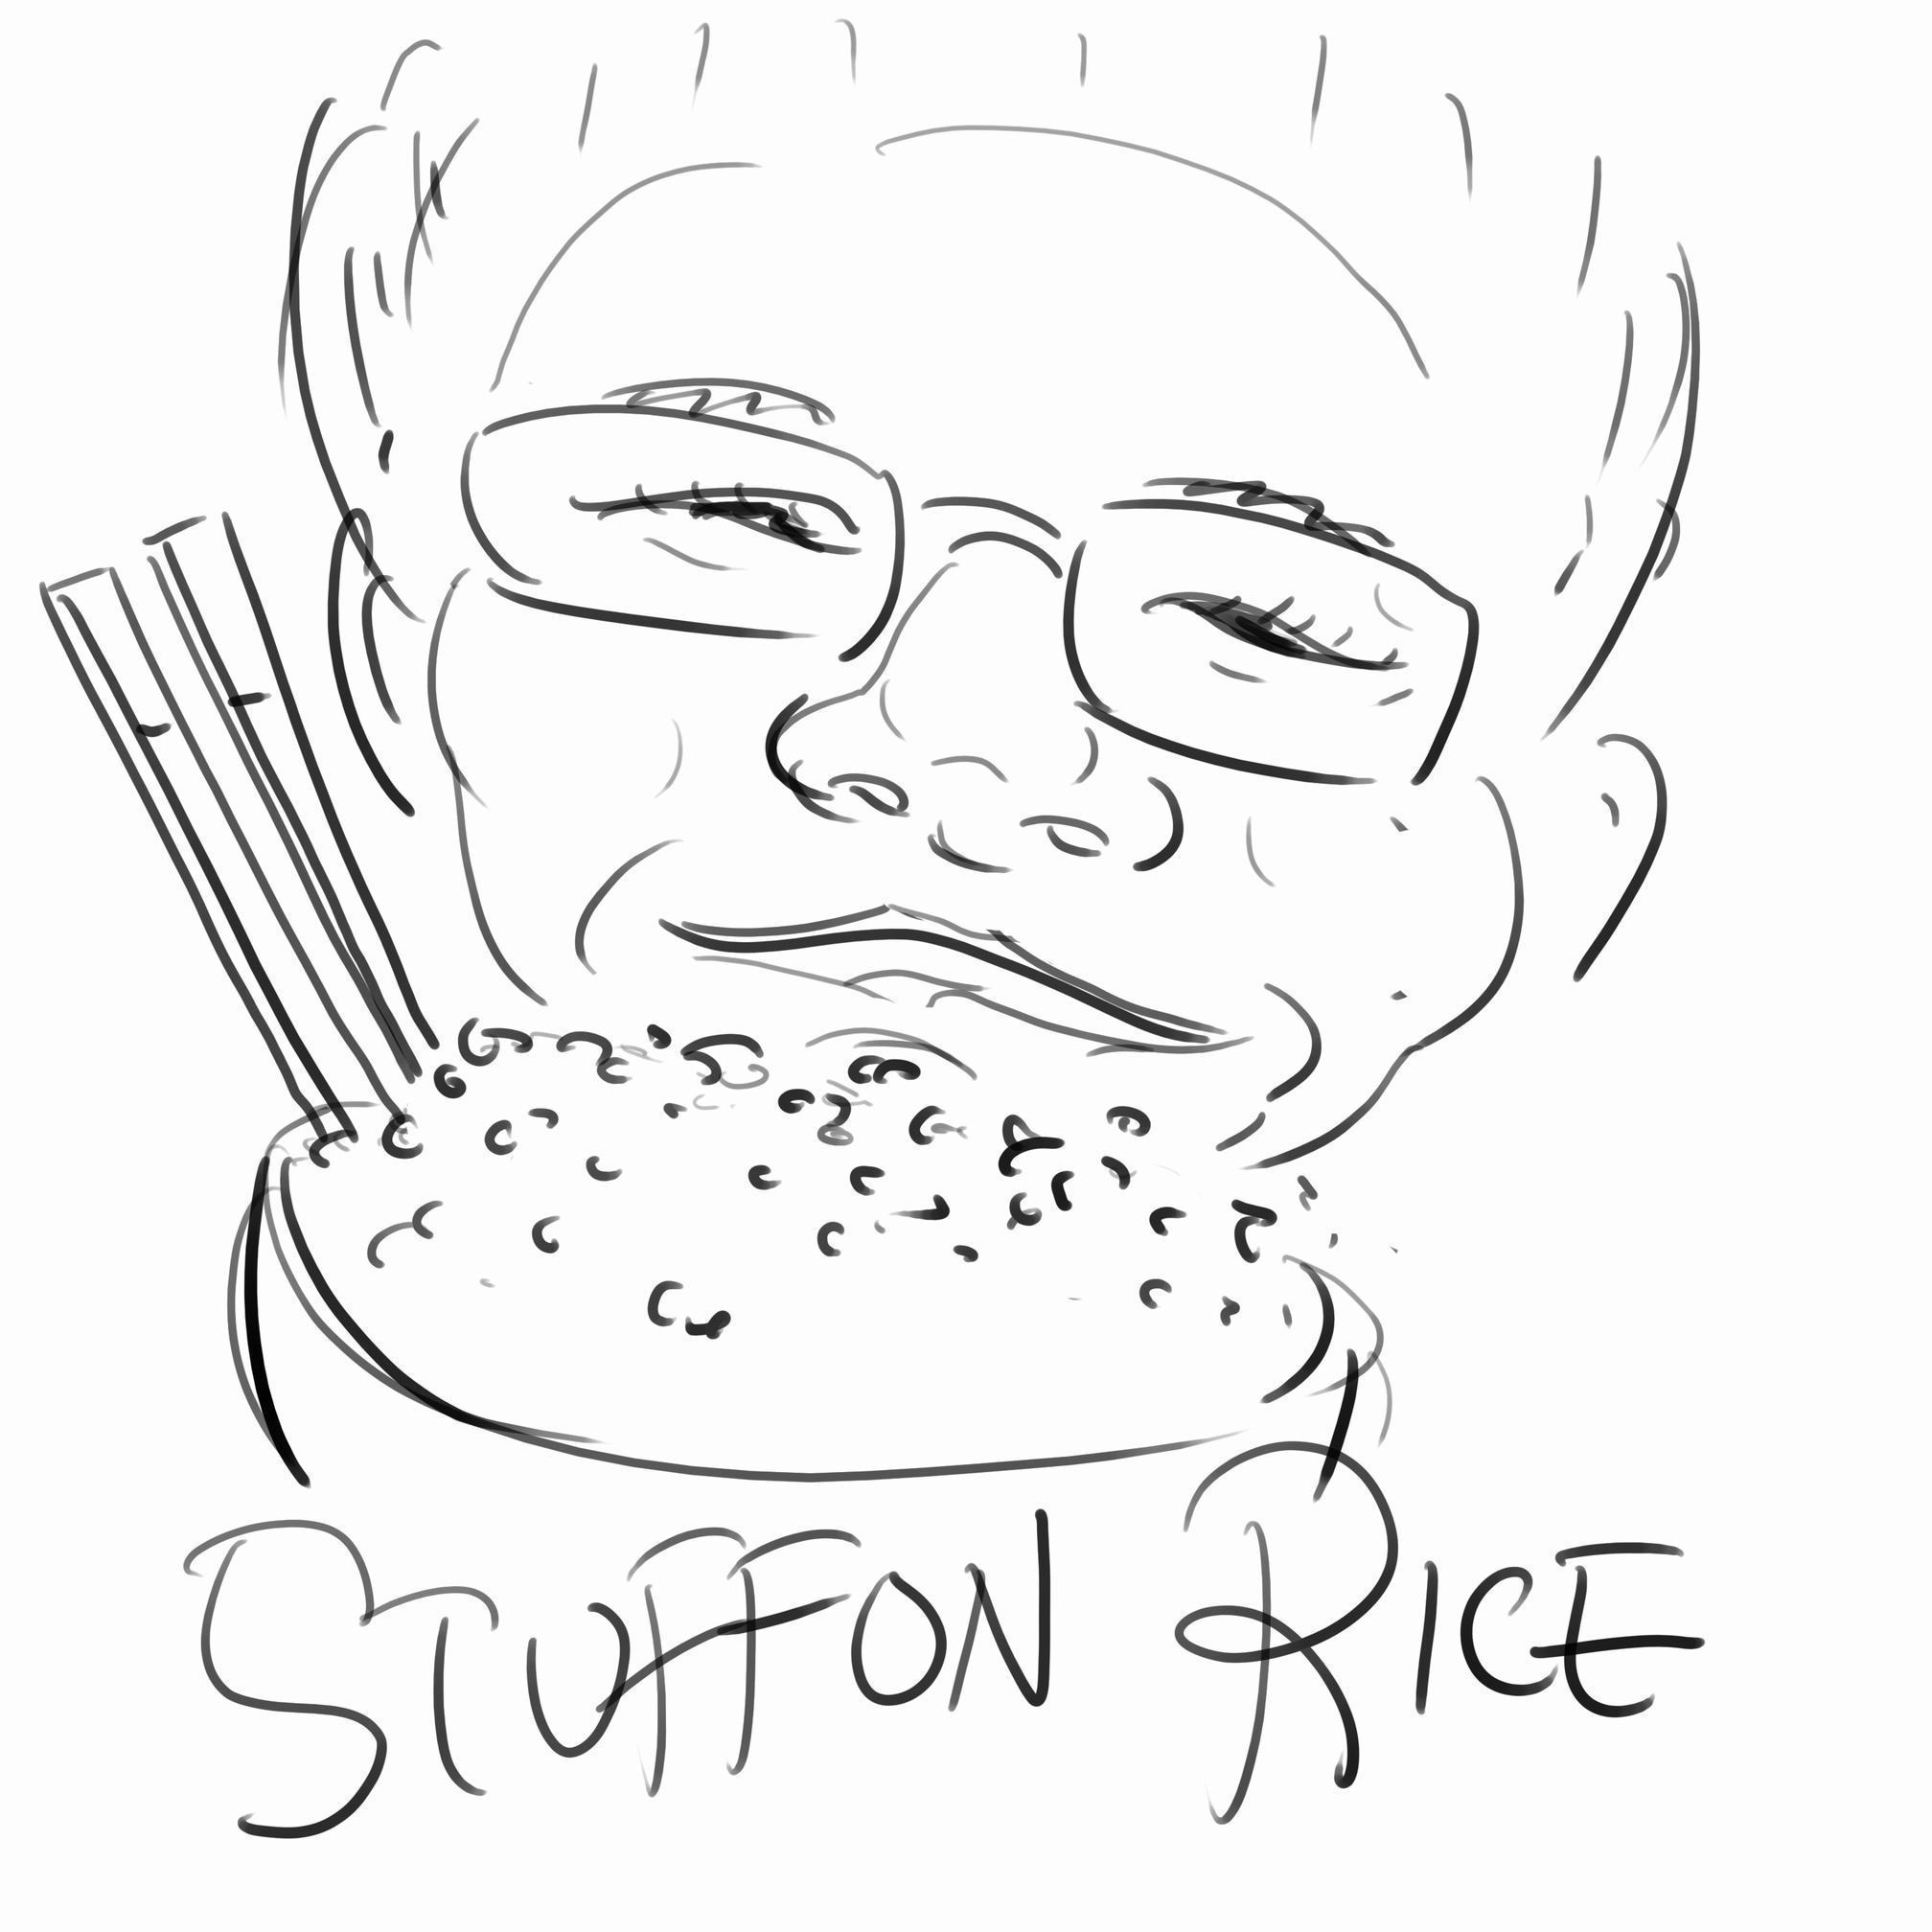 STUFF ON RICE